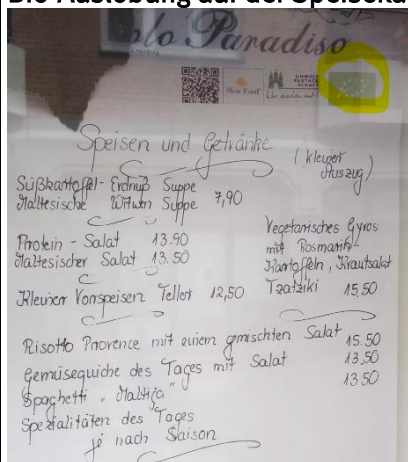 Paradiso
Slow Food
UMWELT
PARTNER
Speisen und Getränke
(kleiner
Auszug)
Süßkartoffel- Erdnuß Suppe
Maltesische Witwen Suppe 7,90
Protein - Salat 13.90
Maltesischer Salat 13.50
Kleiner Vorspeisen Teller 12,50
Vegetarisches Gyros
mit Rosmarin-
Kartoffeln, Krautsalat
Tzatziki 15.50
Risotto Provence mit einem gmischten Salat 15.50
Gemüsequiche des Tages mit Salat 13,50
Spaghetti "Maltija" 13.50
Spezialitäten des Tages
je nach Saison